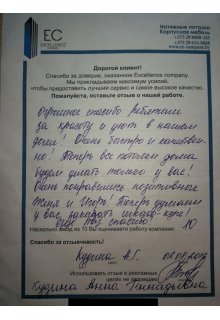 EC
EXCELLENCE
Натяжные потолки
Корпусная мебель
www.ec-company.by
Дорогой клиент!
Спасибо за доверие, оказанное Excellence company.
Мы прикладываем максимум усилий,
чтобы предоставить лучший сервис и самое высокое качество.
Пожалуйста, оставьте отзыв о нашей работе.
Огромное спасибо ребятам
за красоту и уют в нашем
доме! Очень быстро и качествен-
но! Теперь все потолки дома
будем делать только у вас!
Очень понравились позитивные
Женя и Игорь. Теперь думаем
у вас заказать шкаф-купе!
Еще раз спасибо!
Насколько звезд из 10 Вы оцениваете работу компании: 10
Спасибо за отзывчивость!
Кудина А.Г.
Использовать отзыв в рекламных
целях не возражаю
Кудина Анна Геннадьевна